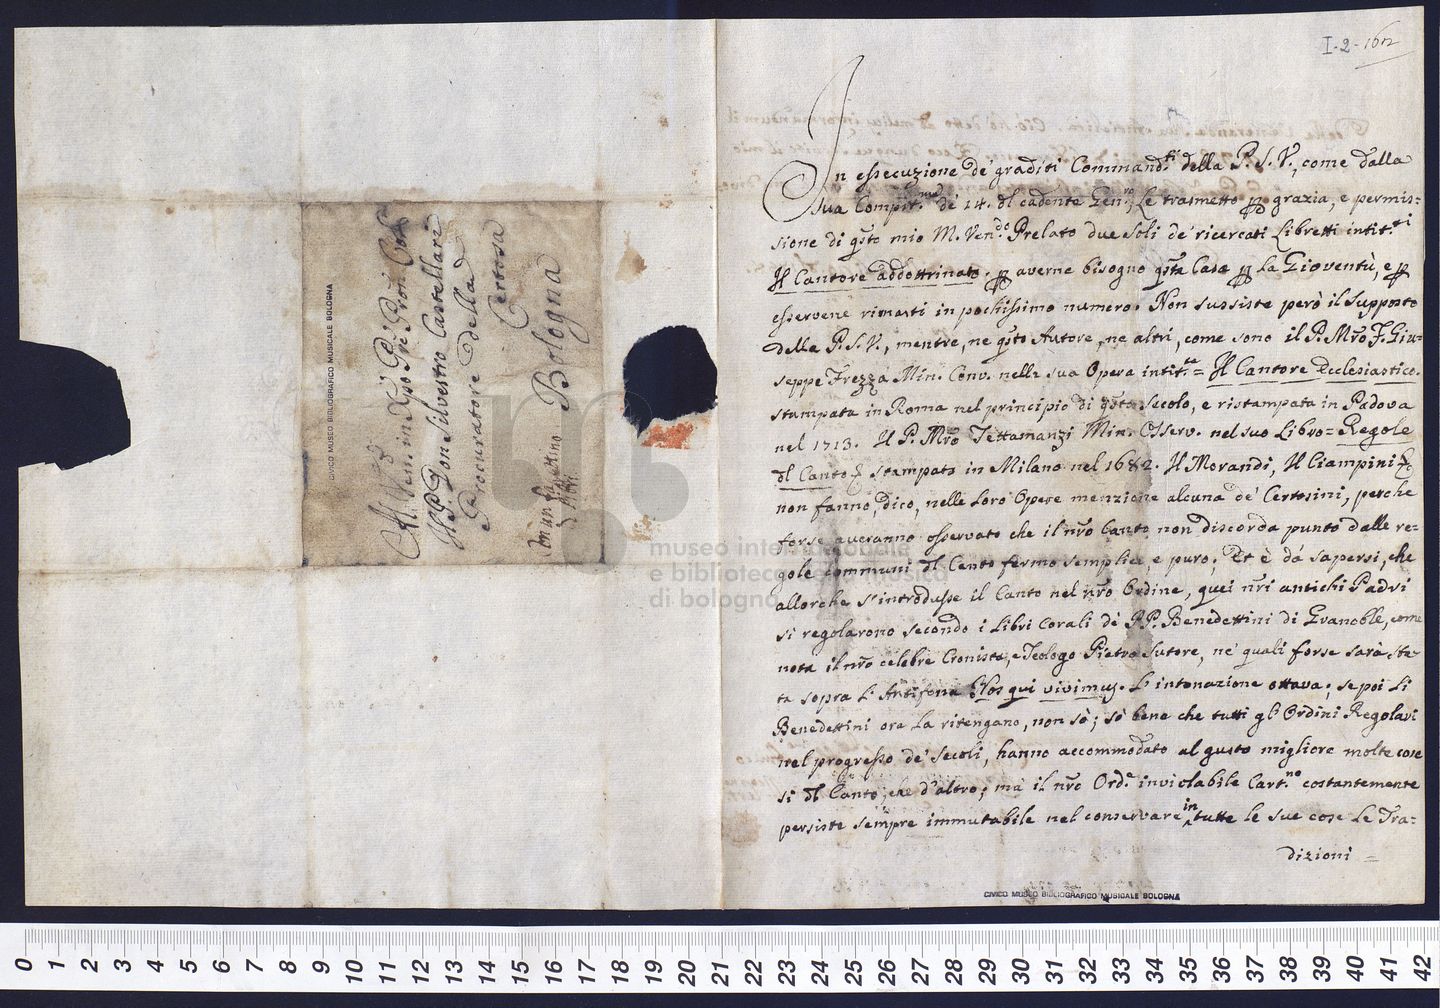 I-2-162
In essecuzione de' graditi Command.ti della P.S.V., come dalla
Sua Compit.ma de' 14. dl cadente Gen.ro, Le trasmetto p grazia, e permis=
sione di qsto mio M. Ven.do Prelato due soli de' ricercati Libretti intit.ti
Il Cantore addottrinato. p averne bisogno qsta Casa p La Gioventù, e p
esservene rimasti in pochissimo numero. Non sussiste però il supposto
della P.S.V., mentre, ne qsto Autore, ne altri, come sono il P. Mro F. Giu=
seppe Frezza Min. Conv. nella sua Opera intit.ta = Il Cantore Ecclesiastico.
stampata in Roma nel principio di qsto Secolo, e ristampata in Padova
nel 1713. Il P. Mro Tettamanzi Min. Osserv. nel suo Libro = Regole
dl Canto & stampato in Milano nel 1682. Il Morandi, Il Ciampini &
non fanno, dico, nelle Loro Opere menzione alcuna de' Certosini, perche
forse averanno osservato che il nro Canto non discorda punto dalle re=
gole communi dl Canto fermo semplice e puro; Et è da sapersi, che
allorche s'introdusse il Canto nel nro Ordine, quei nri antichi Padri
si regolarono secondo i Libri Corali de' PP. Benedettini di Granoble, come
nota il nro celebre Cronista, e Teologo Pietro Sutore, ne' quali forse sarà sta=
ta sopra L'Antifona Nos qui vivimus. L'intonazione ottava; se poi Li
Benedettini ora La ritengano, non sò; sò bene che tutti gli Ordini Regolari
nel progresso de' Secoli, hanno accommodato al gusto migliore molte cose
si dl Canto, che d'altro; ma il nro Ord.e inviolabile Cart.no costantemente
persiste sempre immutabile nel conservare in tutte le sue cose Le Tra=
dizioni =
CIVICO MUSEO BIBLIOGRAFICO MUSICALE BOLOGNA
Al Ven. in Xpo Pre Pron Col.
Il P. Don Silvestro Castellari
Procuratore della
Certosa
Bologna
Con un
CIVICO MUSEO BIBLIOGRAFICO MUSICALE BOLOGNA
museo internazionale
e biblioteca della musica
di bologna
0 1 2 3 4 5 6 7 8 9 10 11 12 13 14 15 16 17 18 19 20 21 22 23 24 25 26 27 28 29 30 31 32 33 34 35 36 37 38 39 40 41 42